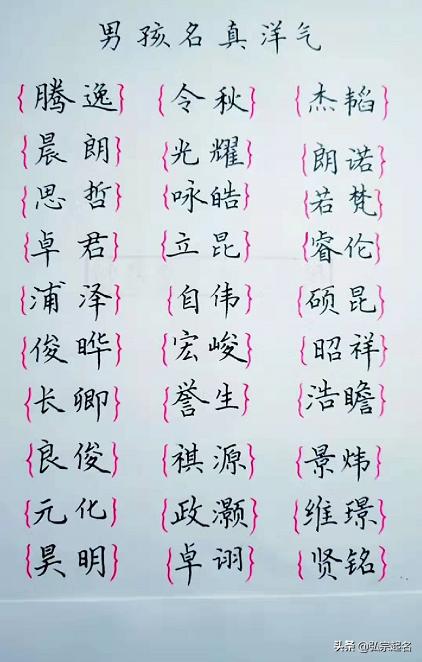 男孩名真洋气
{腾逸} {令秋} {杰韬}
{晨朗} {光耀} {朗诺}
{思哲} {咏皓} {若梵}
{卓君} {立昆} {睿伦}
{浦泽} {自伟} {硕昆}
{俊晔} {宏峻} {昭祥}
{长卿} {誉生} {浩瞻}
{良俊} {祺源} {景炜}
{元化} {政灏} {维璟}
{昊明} {卓诩} {贤铭}
头条 @弘宗起名